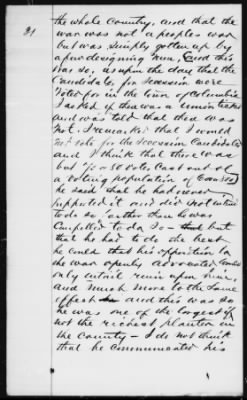 21
the whole Country, and that the
war was not a peoples war
but was simply gotten up by
a few designing men, and this
was so, as upon the day that the
Candidate for Secession were
voted for in the town of Columbia
I asked if there was a union ticket
and was told that there was
not. I remarked that I would
not vote for the Secession Candidates
and I think that there was
but 75 or 80 votes Cast out of
a voting population of
he said that he had never
supported it and did not intend
to do so further than he was
Compelled to do so - but
that he had to do the best
he could that his opposition to
the war openly avowed would
only entail ruin upon him,
and much more to the same
effect and this was so
he was one of the largest if
not the richest planter in
the County - I do not think
that he communicated his